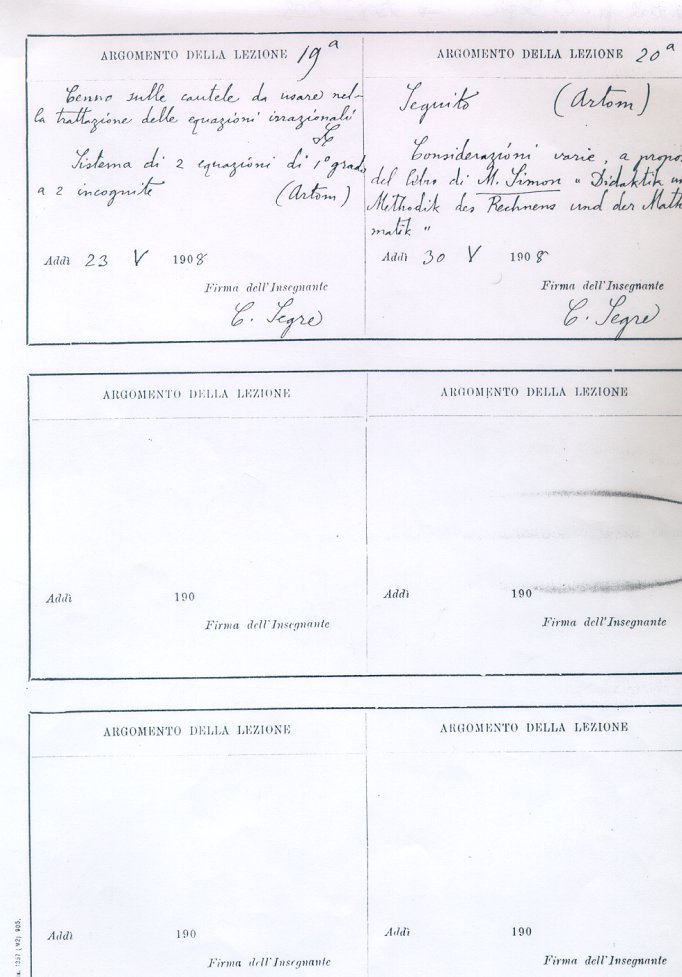 ARGOMENTO DELLA LEZIONE 19ª
Cenno sulle cautele da usare nel-
la trattazione delle equazioni irrazionali
Sistema di 2 equazioni di 1° grado
a 2 incognite (Artom)
Addì 23 V 1908
Firma dell'Insegnante
C. Segre
ARGOMENTO DELLA LEZIONE 20ª
Seguito (Artom)
Considerazioni varie, a propo
del libro di M. Simon " Didaktik u
Methodik des Rechnens und der Math
matik "
Addì 30 V 1908
Firma dell'Insegnante
C. Segre
ARGOMENTO DELLA LEZIONE
Addì 190
Firma dell'Insegnante
ARGOMENTO DELLA LEZIONE
Addì 190
Firma dell'Insegnante
ARGOMENTO DELLA LEZIONE
Addì 190
Firma dell'Insegnante
ARGOMENTO DELLA LEZIONE
Addì 190
Firma dell'Insegnante